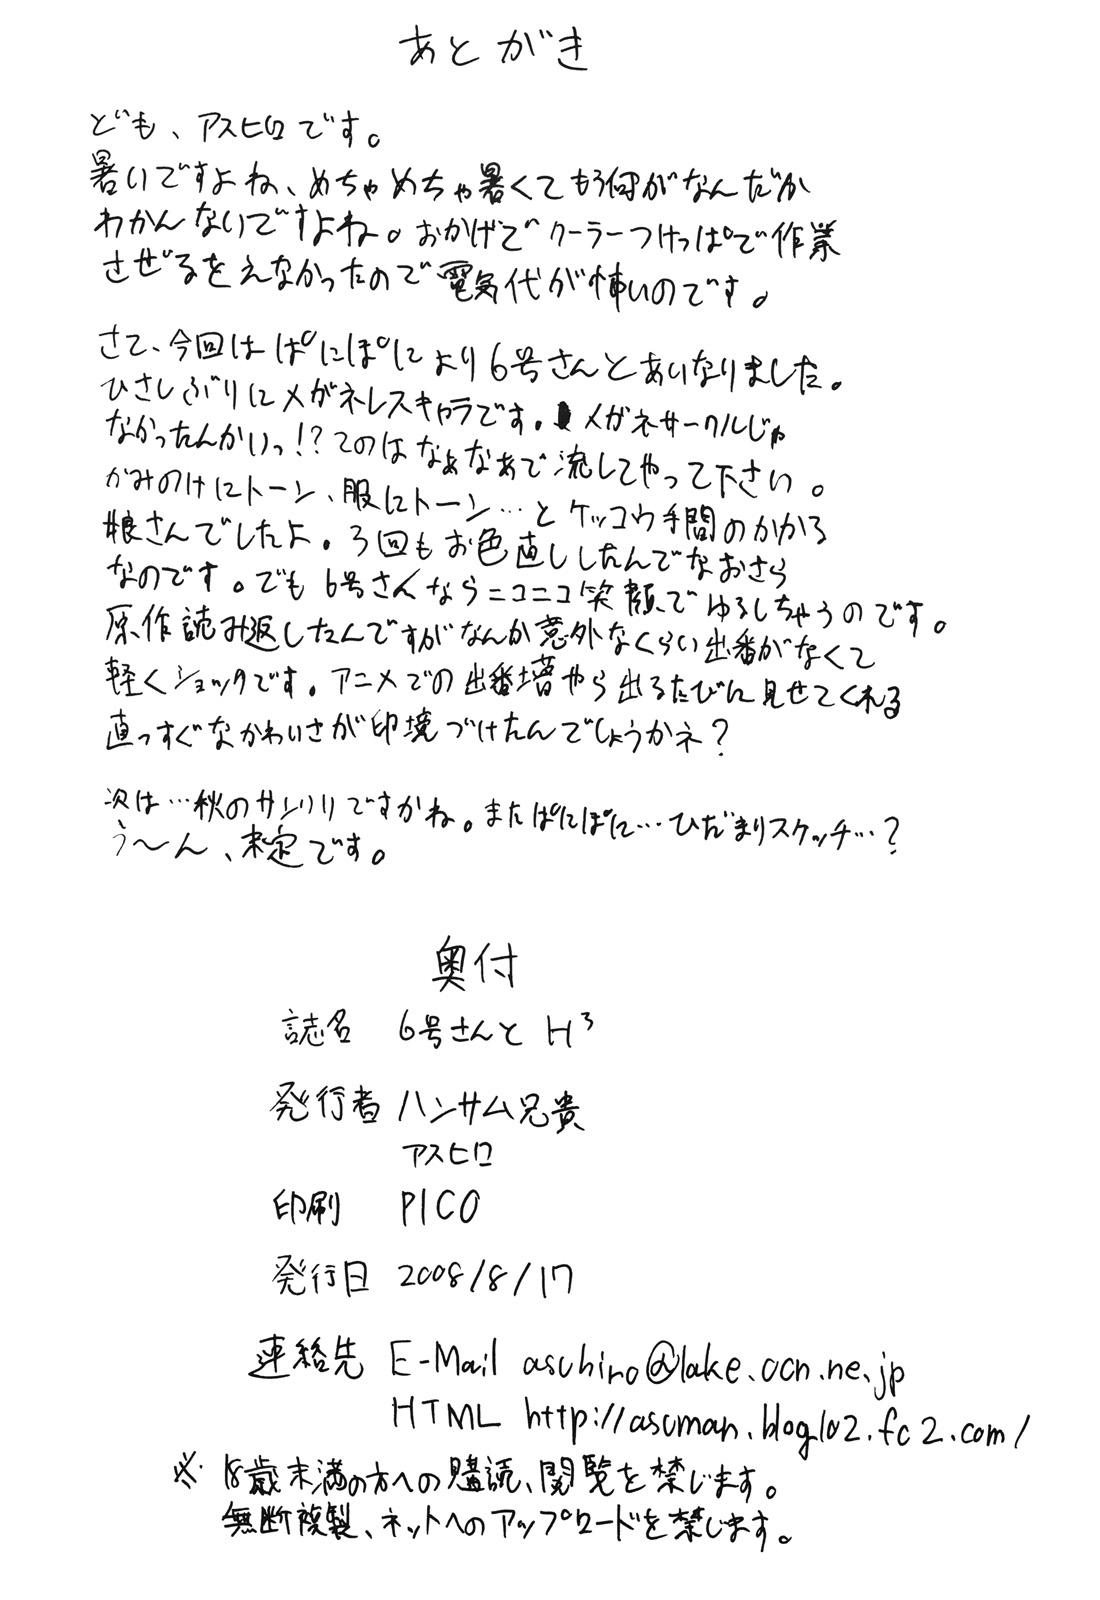 あとがき
ども、アスヒロです。
暑いですよね、めちゃめちゃ暑くてもう何がなんだか
わかんないですよね。おかげでクーラーつけっぱで作業
させざるをえなかったので電気代が怖いのです。
さて、今回はぱにぽにより6号さんとあいなりました。
ひさしぶりにメガネレスキャラです。メガネサークルじゃ
なかったんかいっ!?てのはなぁなぁで流してやって下さい。
かみのけにトーン、服にトーン…とケッコウ手間のかかる
娘さんでしたよ。3回もお色直ししたんでなおさら
なのです。でも6号さんならニコニコ笑顔でゆるしちゃうのです。
原作読み返したんですがなんか意外なくらい出番がなくて
軽くショックです。アニメでの出番増やら出るたびに見せてくれる
直っすぐなかわいさが印境づけたんでしょうかネ?
次は…秋のサンクリですかね。またぱにぽに…ひだまりスケッチ…?
う〜ん、未定です。
奥付
誌名 6号さんと H³
発行者 ハンサム兄貴
アスヒロ
印刷 PICO
発行日 2008/8/17
連絡先 E-Mail asuhiro@lake.ocn.ne.jp
HTML http://asuman.blog102.fc2.com/
※ 18歳未満の方への購読、閲覧を禁じます。
無断複製、ネットへのアップロードを禁じます。